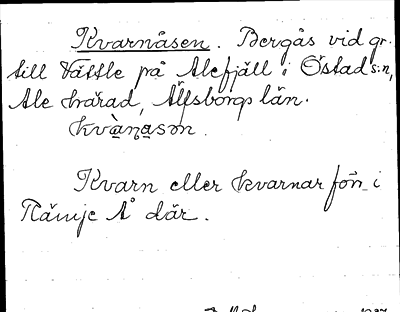 Kvarnåsen. Bergås vid gr.
till Vättle på Alefjäll i Östad s:n,
Ale härad, Älfsborgs län.
kvànason.
Kvarn eller kvarnar för i
Å där.